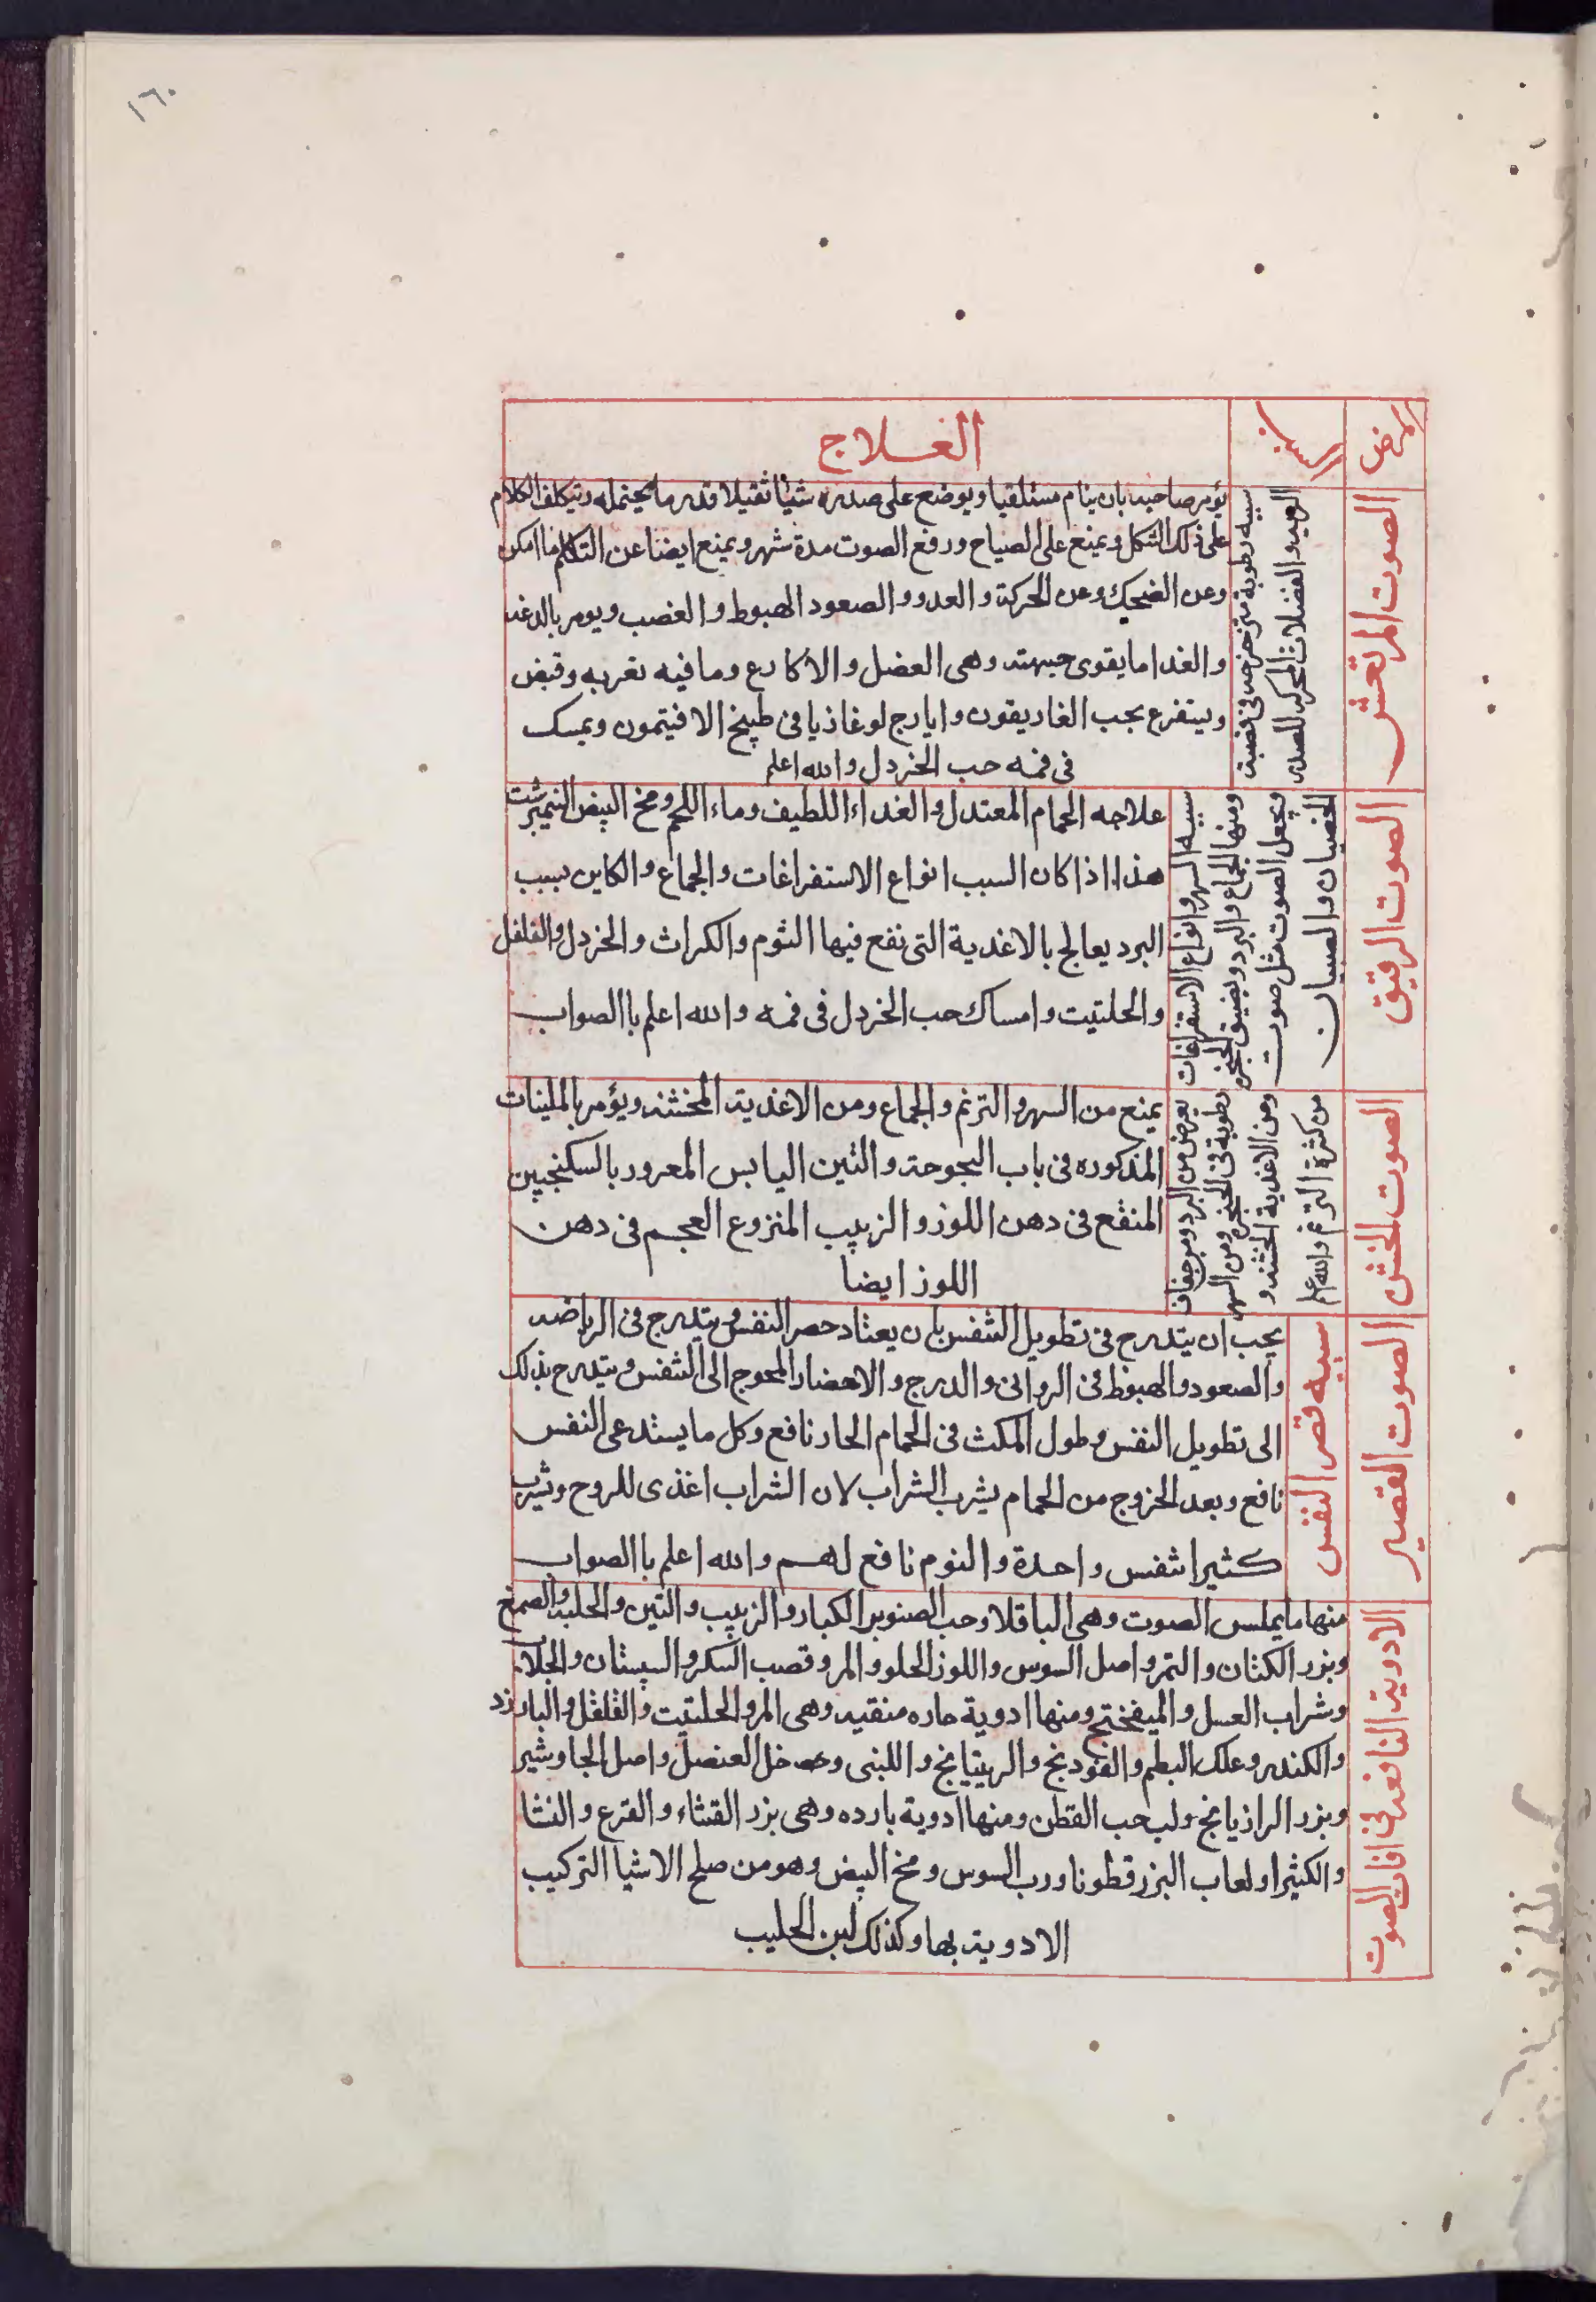 ١٦٠
المرض
السبب
العلاج
الصوت المرتعش
سببه رطوبة متزحزحه فى قصبة
الريه والفضلات المحركه للصدر
يؤمر صاحبه بان ينام مستلقيا ويوضع على صدره شيئا ثقيلا قدر ما يحتمله ويتكلف الكلام
على ذلك الشكل ويمنع على الصياح ورفع الصوت مدة شهر ويمنع ايضا عن التكلم ما امكن
وعن الضحك وعن الحركة والعدو والصعود الهبوط والغضب ويومر بالدعه
والغدا ما يقوى جبهته وهى العضل والاكارع وما فيه تغريه وقبض
ويتفرغ بحب الغاريقون وايارج لوغاذيا فى طبيخ الافيتمون ويمسك
فى فمه حب الخردل والله اعلم
الصوت الرقيق
سببه السهر وانواع الاستفراغات
ومنها الجماع والبرد ويضيق الحنجره
ويجعل الصوت مثل صوت
الخصيان والصبيان
علاجه الحمام المعتدل والغداء اللطيف وماء اللحم ومخ البيض النيمبرشت
هذا اذا كان السبب انواع الاستفراغات والجماع والكاين بسبب
البرد يعالج بالاغدية التى نفع فيها الثوم والكراث والخردل والفلفل
والحلتيت وامساك حب الخردل فى فمه والله اعلم باالصواب
الصوت الخشن
يعرض من البرد ومن جفاف
رطوبة فى الحنجره ومن السهر
ومن الاغدية الخشنه و
من كثرة الترنم والله اعلم
يمنع من السهر والترنم والجماع ومن الاغدية المخشنه ويؤمر بالملينات
المذكوره فى باب البحوحة والتين اليابس المعرور بالسكنجبين
المنقع فى دهن اللوز والزبيب المنزوع العجم فى دهن
اللوز ايضا
الصوت القصير
سببه قصر النفس
يجب ان يتدرج فى تطويل التنفس بان يعتاد حصر النفس ويتدرج فى الرياضه
والصعود والهبوط فى الروانى والدرج والاحضار المحوج الى التنفس ويتدرج بذلك
الى تطويل النفس وطول المكث فى الحمام الحار نافع وكل ما يستدعى النفس
نافع وبعد الخروج من الحمام يشرب الشراب لان الشراب اغذى للروح ويشرب
كثيرا بنفس واحدة والنوم نافع لهم والله اعلم باالصواب
الادوية النافعه فى افات الصوت
منها ما يملس الصوت وهى الباقلا وحب الصنوبر الكبار والزبيب والتين والحلبه والصمغ
وبزر الكتان والتمر واصل السوس واللوز الحلو والمر وقصب السكر والسبستان والجلاب
وشراب العسل والميفختج ومنها ادوية حاره منقيه وهى المر والحلتيت والفلفل والبارزد
والكندر وعلك البطم والفودنج والريتيانج واللبنى وخل العنصل واصل الجاوشير
وبزر الرازيانج ولب حب القطن ومنها ادوية بارده وهى بزر القثاء والقرع والنشا
والكثيرا ولعاب البزرقطونا ورب السوس ومخ البيض وهو من صلح الاشيا التركيب
الادوية بها وكذلك لبن الحليب